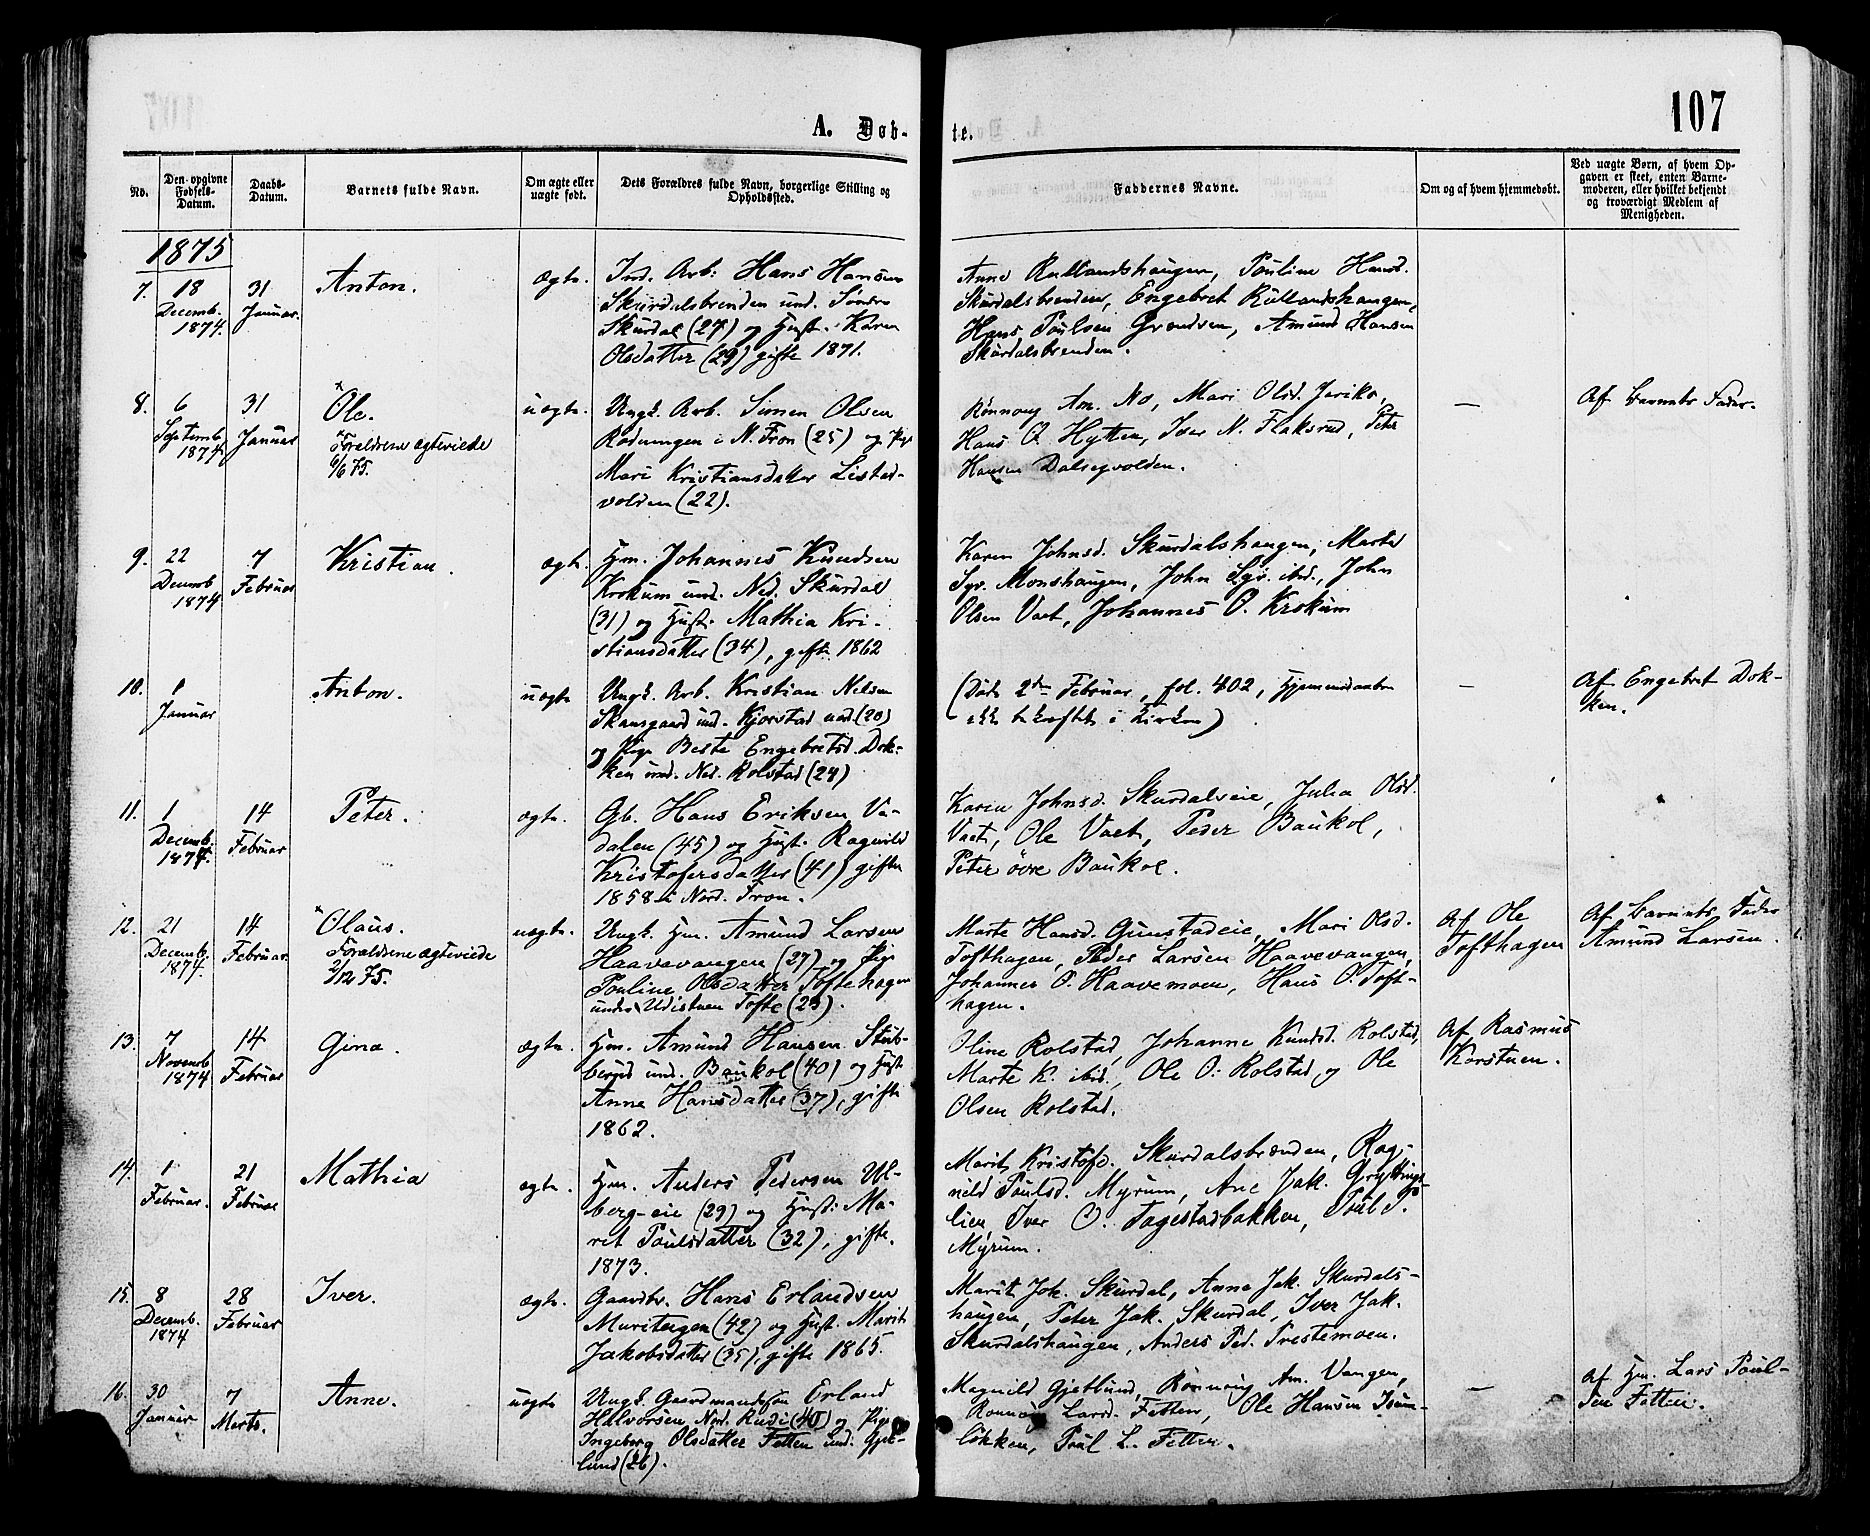 107
A. Døb-
te.
No.
Den opgivne Fødsels-Datum.
Daabs-Datum.
Barnets fulde Navn.
Om ægte eller uægte født.
Dets Forældres fulde Navn, borgerlige Stilling og Opholdssted.
Faddernes Navne.
Om og af hvem hjemmedøbt.
Ved uægte Børn, af hvem Opgaven er skeet, enten Barnemoderen, eller hvilket bekjendt og troværdigt Medlem af Menigheden.
1875
7. 18 Decemb. 1874. 31 Januar. Anton. ægte.
Ind. Arb: Hans Hansen
Skurdalsbrenden und. Søndre
Skurdal (27) og Hust. Karen
Olsdatter (29) gifte 1871.
Anne Rullandshaugen, Pouline Hansd.
Skurdalsbrenden, Engebret Rullandshaugen,
Hans Poulsen Grendsen, Amund Hansen
Skurdalsbrenden.
8. 6 Septemb. 1874 31 Januar *Ole. uægte.
*Forældrene ægteviede
6/6 75.
Ungk. Arb. Simen Olsen
Rødningen i N. Fron (25) og Pige
Mari Kristiansdatter Listad-
volden (22).
Rønnoug Am. No, Mari Olsd. Jeriko,
Hans O. Hytten, Iver N. Flaksrud, Peter
Hansen Dalsegvolden.
—
Af Barnets Fader.
9. 22 Decemb 1874 7 Februar Kristian. ægte.
Hm. Johannes Knudsen
Krokum und. Ned. Skurdal
(31) og Hust. Mathia Kri-
stiansdatter (34), gifte 1862
Karen Johnsd. Skurdalshaugen, Marte
Syv. Monshaugen, John Syv. ibid., John
Olsen Vaet, Johannes O. Krokum
10. 1 Januar Anton. uægte
Ungk. Arb. Kristian Nelsen
Skansgaard und. Kjorstad (20)
og Pige Beste Engebretsd. Dok-
ken und. Ned. Kolstad (24)
(Død 2den Februar, fol. 402, Hjemmedaaben
ikke bekræftet i Kirken)
—
Af Engebret Dok-
ken.
11. 1 Decemb. 1874. 14 Februar Peter. ægte.
Gb. Hans Eriksen Va-
dalen (45) og Hust. Ragnild
Kristofersdatter (41) gifte
1858 i Nord. Fron.
Karen Johnsd. Skurdalseie, Julia Olsd.
Vaet, Ole Vaet, Peder Baukol,
Peter øvre Baukol.
12. 21 Decemb. 1874. 14 Februar. *Olaus. uægte.
Forældrene ægteviede
2/12 75.
Ungk. Hm. Amund Larsen
Haavevangen (27) og Pige
Pouline Olsdatter Toftehagen
under Udistuen Tofte (23).
Marte Hansd. Gunstadeie, Mari Olsd.
Tofthagen, Peder Larsen Haavevangen,
Johannes O. Haavemoen, Hans O. Toft-
hagen.
Af Ole
Tofthagen
Af Barnets Fader
Amund Larsen.
13. 7 Novemb 1874 14 Februar Gina. ægte.
Hm. Amund Hansen Stub-
berud und. Baukol (40) og Hust
Anne Hansdatter (37), gifte
1862.
Oline Rolstad, Johanne Knudsd. Rolstad,
Marte K. ibid., Ole O. Rolstad, og Ole
Olsen Rolstad.
Af Rasmus
Korstuen.
14. 1 Februar. 21 Februar Mathia ægte.
Hm. Anders Pedersen Ul-
berg-eie (29) og Hust: Ma-
rit Poulsdatter (32), gifte
1873.
Marit Kristofd. Skurdalsbrenden, Rag-
nild Poulsd. Myrum, Ane Jak. Gryttings-
lien, Iver O. Fagestadbakken, Poul P.
Myrum.
15. 8 Decemb. 1874 28 Februar Iver. ægte.
Gaardbr. Hans Erlandsen
Muritengen (42) og Hust. Marit
Jakobsdatter (35), gifte 1865.
Marit Joh. Skurdal, Anne Jak. Skurdals-
haugen, Peter Jak. Skurdal, Iver Jak.
Skurdalshaugen, Anders Ped. Prestemoen.
16. 30 Januar 7 Marts. Anne. uægte
Ungk. Gaardmandssøn Erland
Halvorsen Nord. Rudi (40) og Pige
Ingeborg Olsdatter Fetten und. Gjet-
lund (26).
Magnild Gjetlund, Rønnoug Am. Vangen,
Rønnog Larsd. Fetten, Ole Hansen Isum-
løkken, Poul L. Fetten.
—
Af Hm. Lars Poul-
sen Fetten.